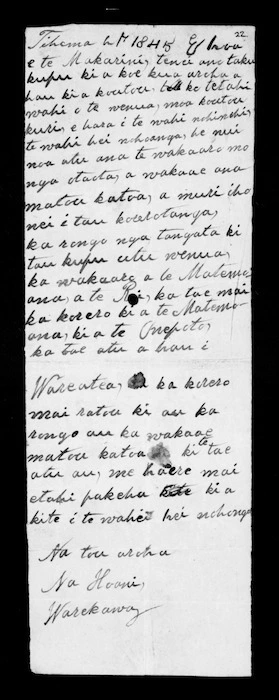 22
Tihema 1845 E hoa
e te Makarini, tenei ano taku
kupu ki a koe kua aroha a
hau ki a koutou, ki tetahi
wahi o te wenua, moa koutou
kuri, e hara i te wahi nohinohi,
te wahi hei nohoanga, he nui
noa atu ana te wakaaro mo
nga otaota, a wakaae ana
matou katoa, a muri iho
nei i tau korerotanga,
ka rongo nga tangata ki
tau kupu utu wenua,
ka wakaaro a te Matemo
ana, a te ka tae mai
ka korero ki a te Matemo
ana, ki a te Onepoto,
ka tae atu a hau i
Wareatea, ka korero
mai ratou ki au ka
rongo au ka wakaae
matou katoa ki te tae
atu au, me haere mai
etahi pakeha kia
kite i te wahi hei nohonga
Na tou aroha
Na Hoani,
Warekawa